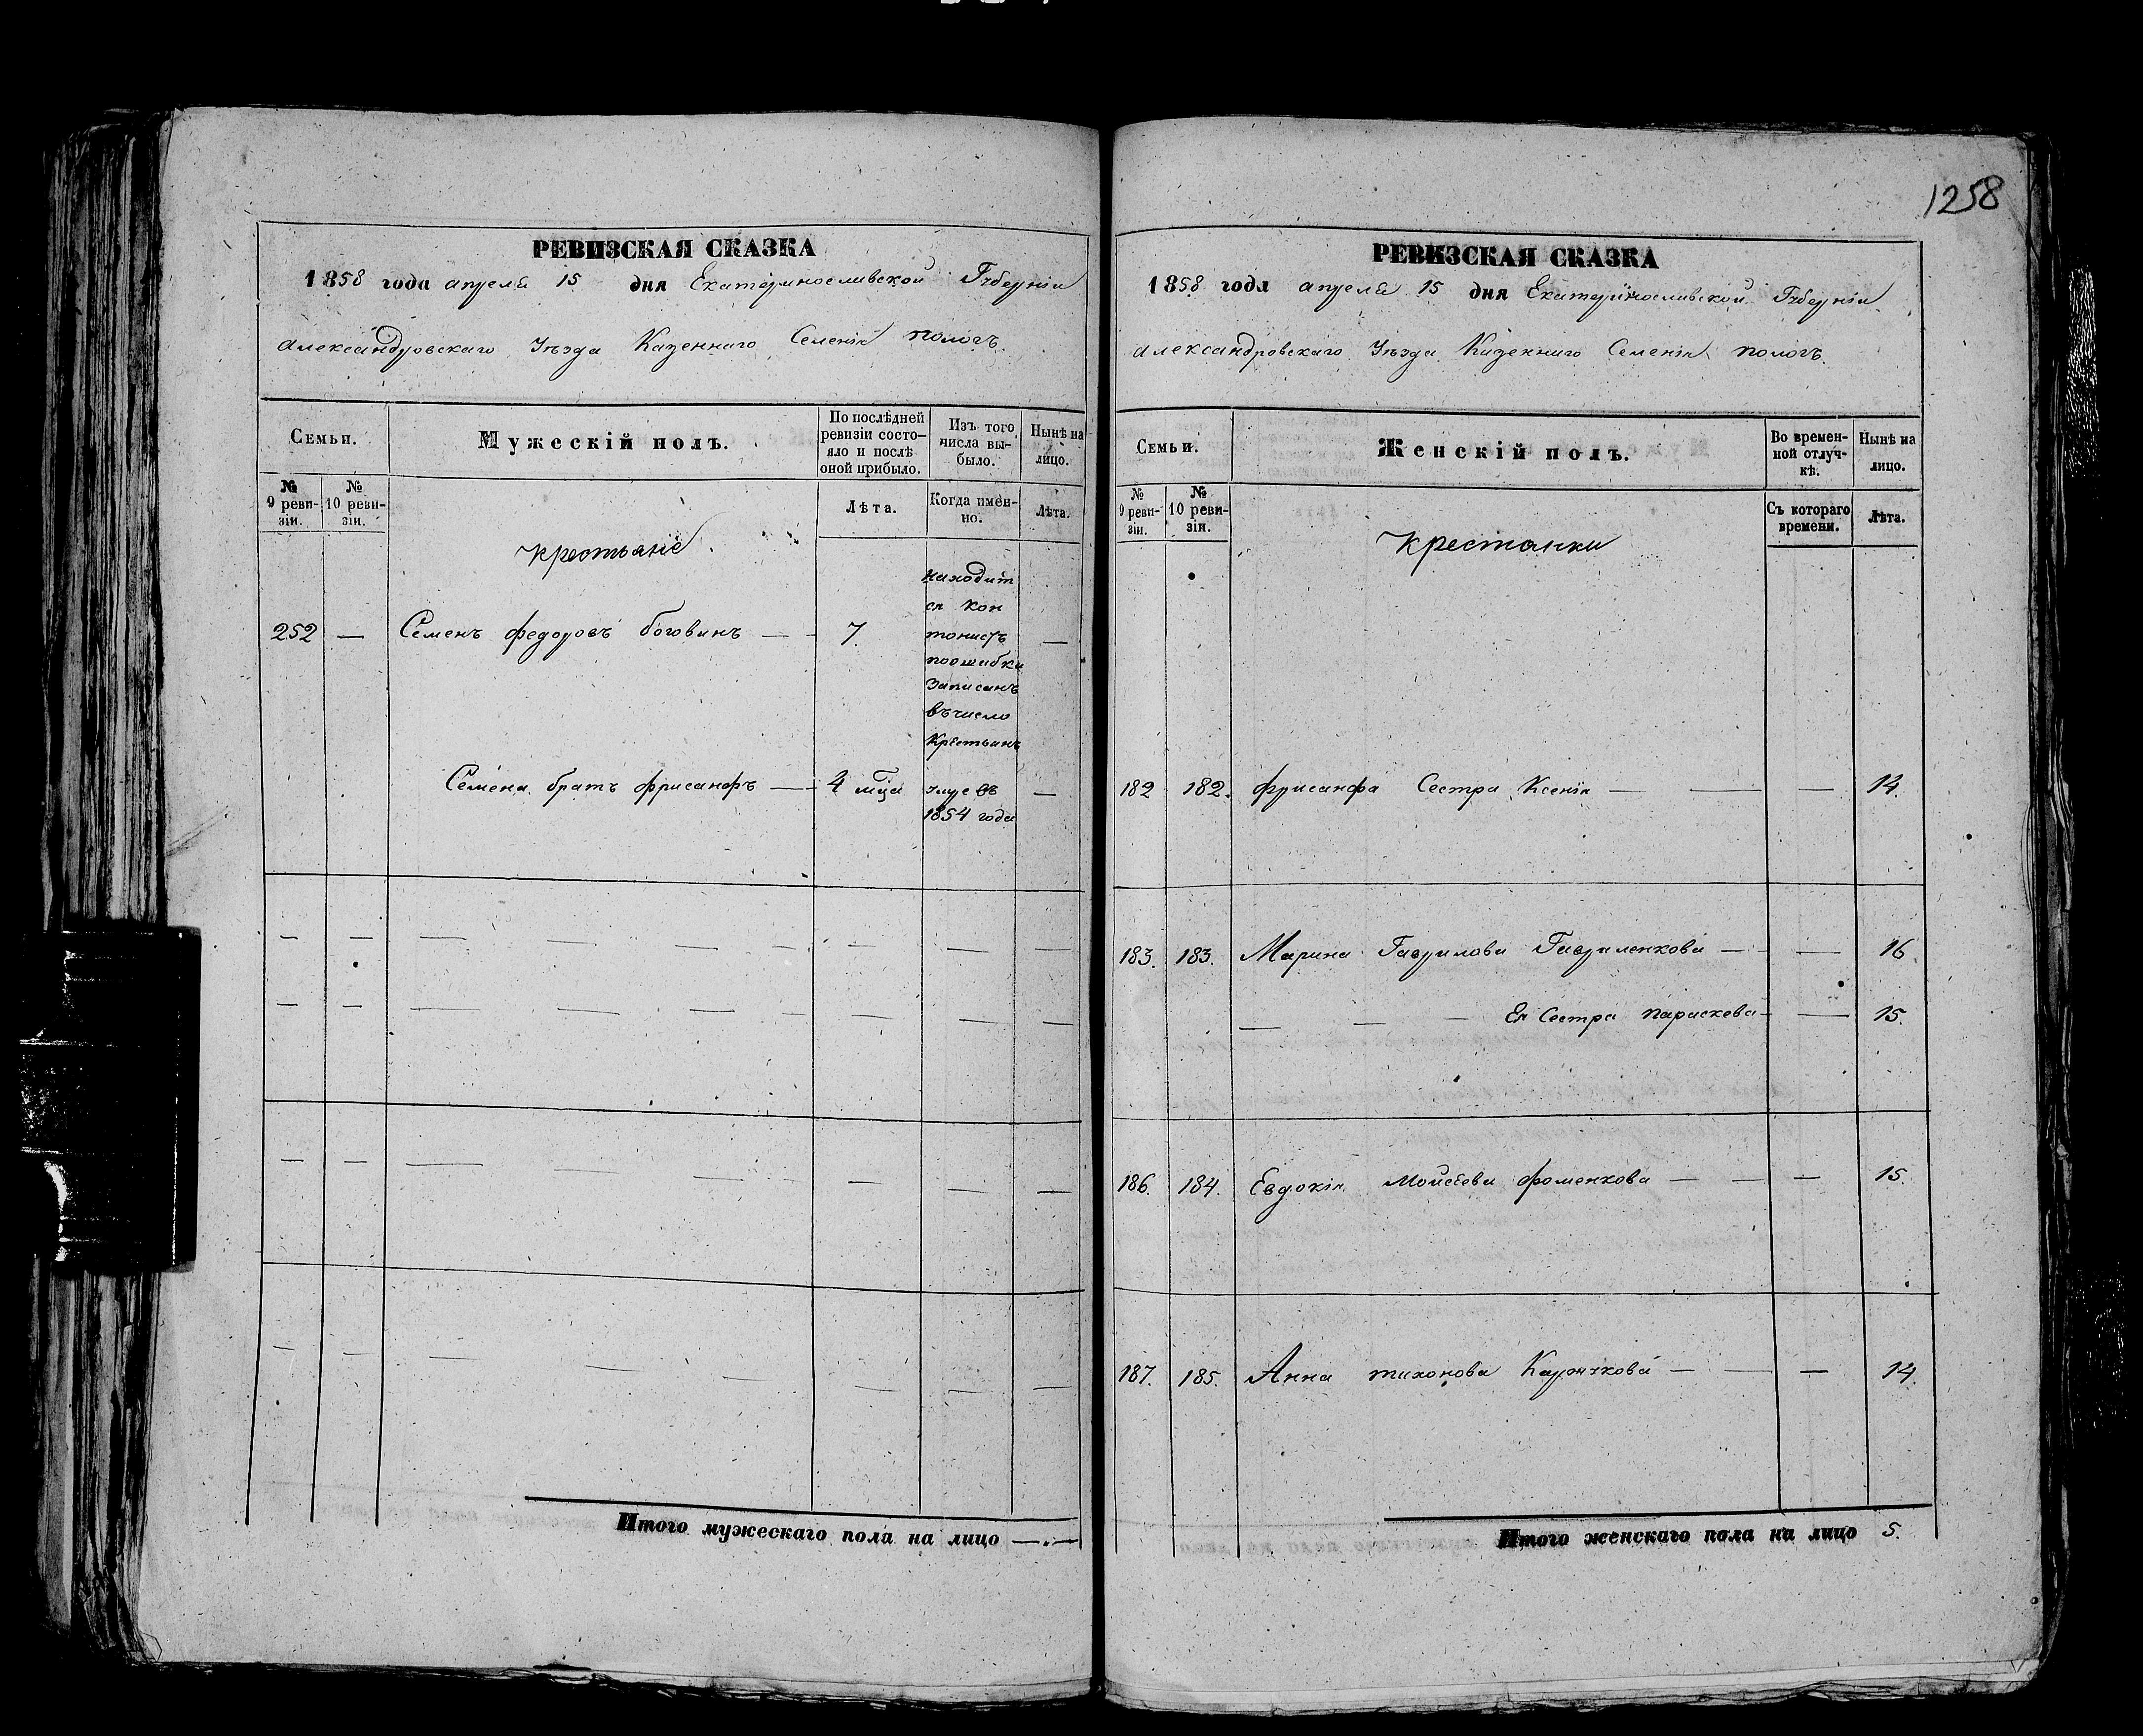 1258
РЕВИЗСКАЯ СКАЗКА
1858 года апреля 15 дня Екатеринославской Губерніи
Александровскаго Уѣзда Казеннаго Селенія пологъ.
Семьи.
Мужескій полъ.
По послѣдней ревизіи состояло и послѣ оной прибыло.
Изъ того числа выбыло.
Нынѣ на лицо.
№ 9 ревизіи.
№ 10 ревизіи.
Лѣта.
Когда именно.
Лѣта.
крестьяне
252 — Семенъ федоровъ боговинъ — 7. —
находит
ся кон
тонистъ
поошибки
Записанъ
въчисло
Крестьянъ
Семена братъ фрисанфъ — 4 мца —
1854 года
Итого мужескаго пола на лицо —
РЕВИЗСКАЯ СКАЗКА
1858 года апреля 15 дня Екатеринославской Губерніи
Александровскаго Уѣзда Казеннаго Селенія пологъ.
Семьи.
Женскій полъ.
Во временной отлучкѣ.
Нынѣ на лицо.
№ 9 ревизіи.
№ 10 ревизіи.
Съ котораго времени.
Лѣта.
крестянки
182 182. фрисанфа Сестра Ксенія — — 14.
183. 183. Марина Гаврилова Гавриленкова — — 16.
Ея Сестра параскева — — 15.
186. 184. Евдокія Моисеева фоменкова — — 15.
187. 185. Анна тихонова — — 14.
Итого женскаго пола на лицо 5.